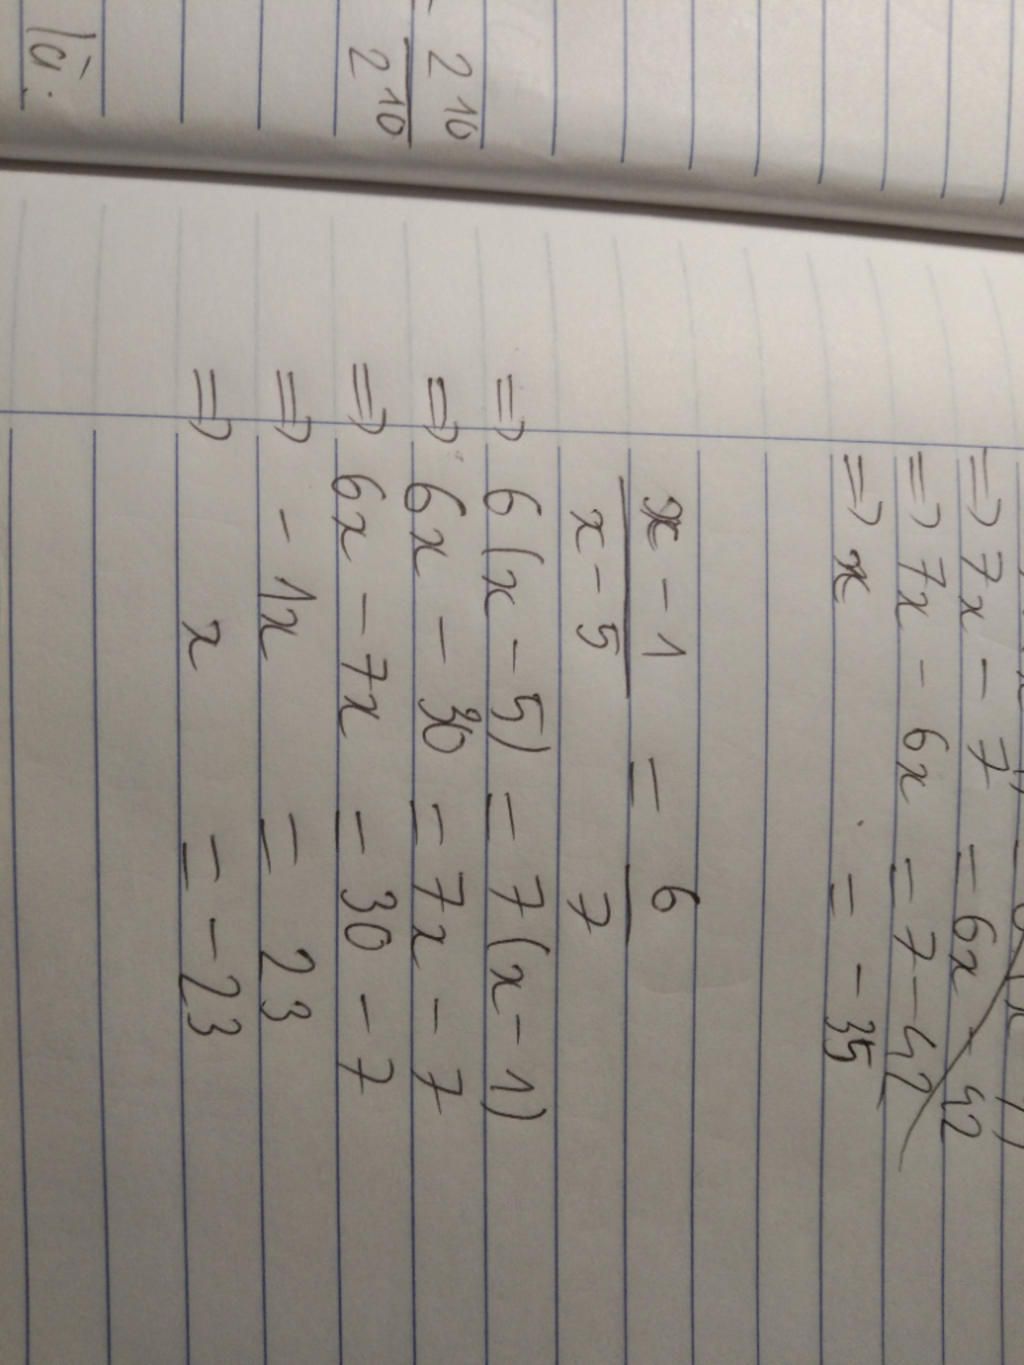 2^10
2^10
là:
⇒ 7x - 7 = 6x - 42
⇒ 7x - 6x = 7 - 42
⇒ x = -35
x - 1 = 6
x - 5   7
⇒ 6(x - 5) = 7(x - 1)
⇒ 6x - 30 = 7x - 7
⇒ 6x - 7x = 30 - 7
⇒ -1x = 23
⇒ x = -23